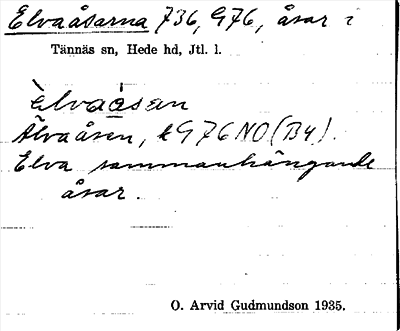 Elvaåsarna 736, 976, åsar i
Tännäs sn, Hede hd, Jtl. l.
Èlvaåsan
Älvaåsen, k 976 NO (B4).
Elva sammanhängande
åsar.
O. Arvid Gudmundson 1935.